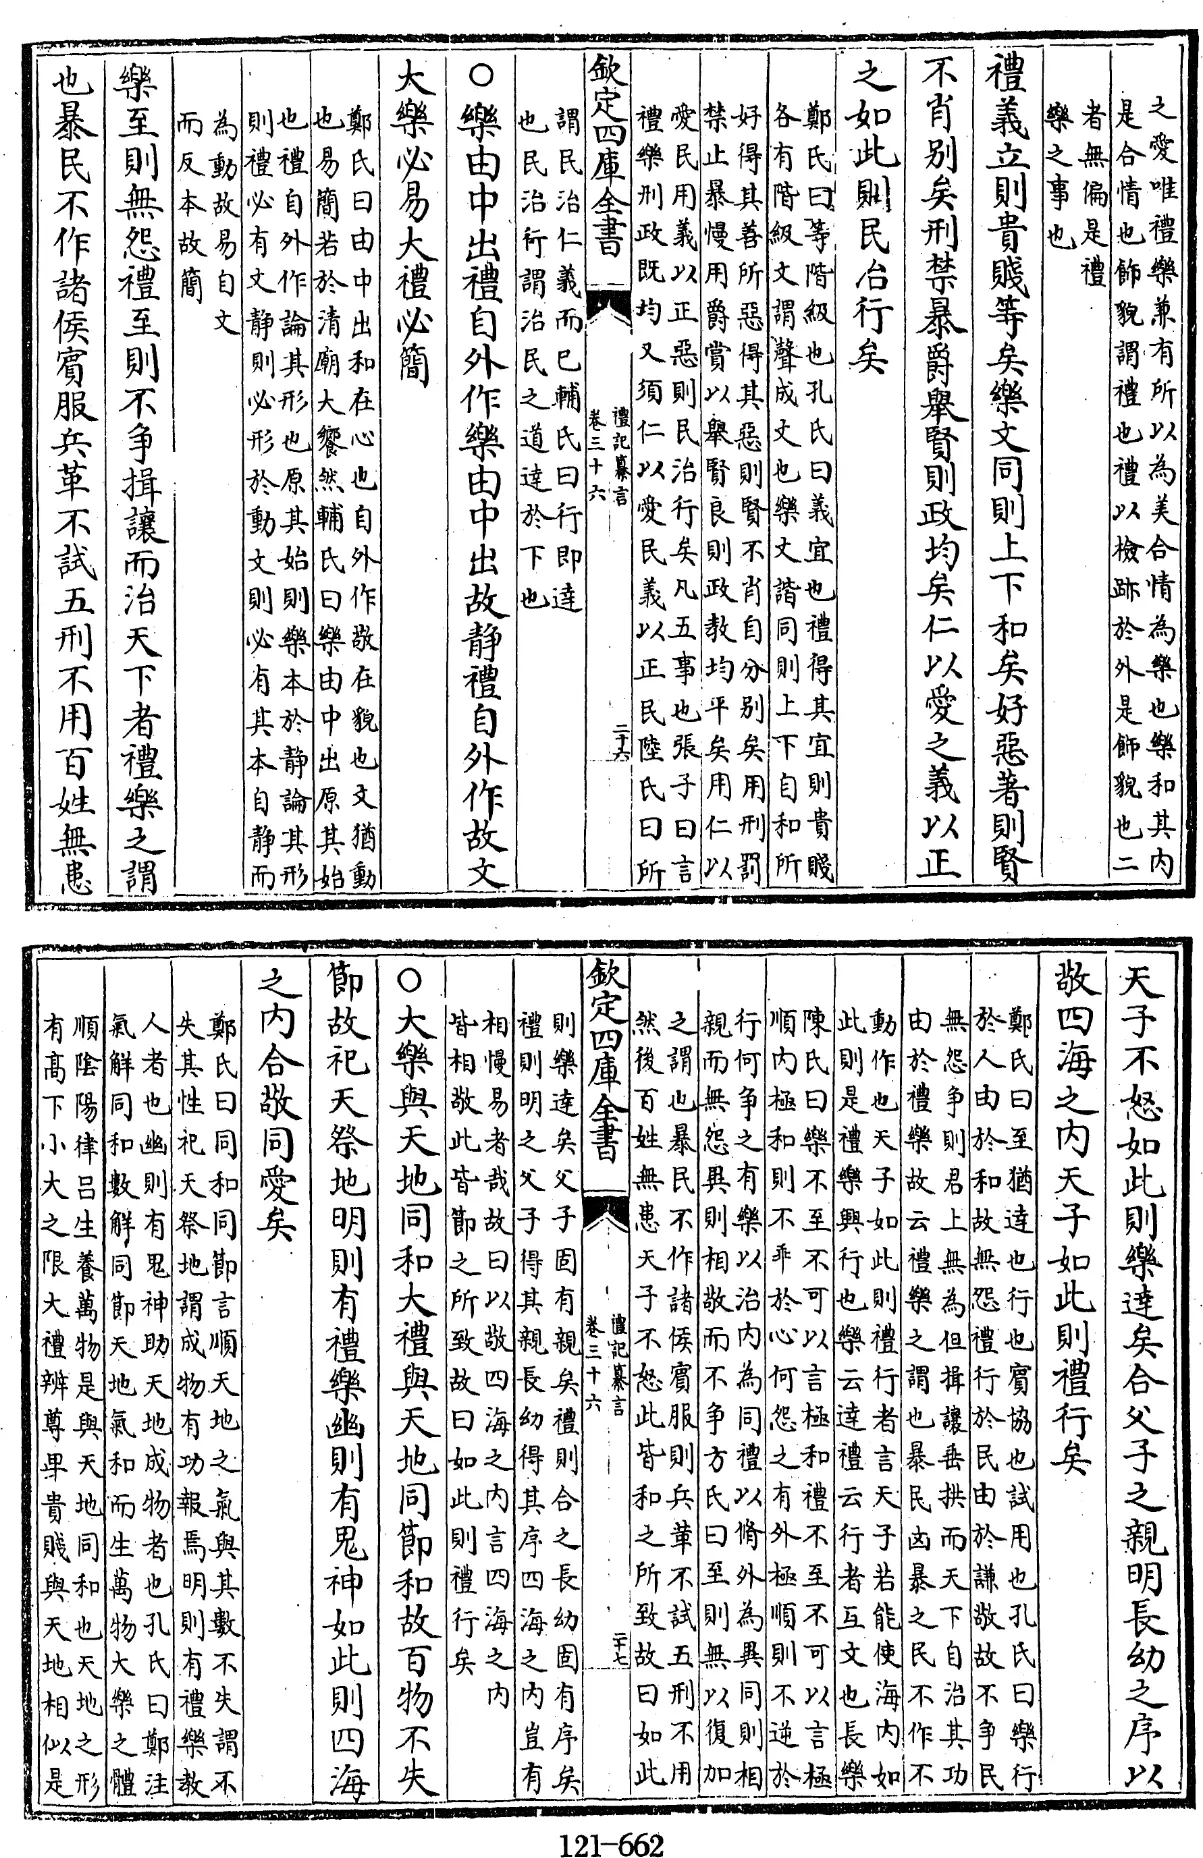 之愛唯禮樂兼有所以為美合情為樂也樂和其内
是合情也飾貌謂禮也禮以檢跡於外是飾貌也二
者無偏是禮
樂之事也
禮義立則貴賤等矣樂文同則上下和矣好惡著則賢
不肖别矣刑禁暴爵舉賢則政均矣仁以愛之義以正
之如此則民治行矣
鄭氏曰等階級也孔氏曰義宜也禮得其宜則貴賤
各有階級文謂聲成文也樂文諧同則上下自和所
好得其善所惡得其惡則賢不肖自分别矣用刑罰
禁止暴慢用爵賞以舉賢良則政教均平矣用仁以
愛民用義以正惡則民治行矣凡五事也張子曰言
禮樂刑政既均又須仁以愛民義以正民陸氏曰所
欽定四庫全書
禮記纂言
卷三十六
二十六
謂民治仁義而已輔氏曰行即達
也民治行謂治民之道達於下也
○樂由中出禮自外作樂由中出故静禮自外作故文
大樂必易大禮必簡
鄭氏曰由中出和在心也自外作敬在貌也文猶動
也易簡若於清廟大饗然輔氏曰樂由中出原其始
也禮自外作論其形也原其始則樂本於静論其形
則禮必有文静則必形於動文則必有其本自静而
為動故易自文
而反本故簡
樂至則無怨禮至則不争揖讓而治天下者禮樂之謂
也暴民不作諸侯賓服兵革不試五刑不用百姓無患
天子不怒如此則樂達矣合父子之親明長幼之序以
敬四海之内天子如此則禮行矣
鄭氏曰至猶達也行也賓協也試用也孔氏曰樂行
於人由於和故無怨禮行於民由於謙敬故不争民
無怨争則君上無為但揖讓垂拱而天下自治其功
由於禮樂故云禮樂之謂也暴民凶暴之民不作不
動作也天子如此則禮行者言天子若能使海内如
此則是禮樂興行也樂云達禮云行者互文也長樂
陳氏曰樂不至不可以言極和禮不至不可以言極
順内極和則不乖於心何怨之有外極順則不逆於
行何争之有樂以治内為同禮以脩外為異同則相
親而無怨異則相敬而不争方氏曰至則無以復加
之謂也暴民不作諸侯賓服則兵革不試五刑不用
然後百姓無患天子不怒此皆和之所致故曰如此
欽定四庫全書
禮記纂言
卷三十六
二十七
則樂達矣父子固有親矣禮則合之長幼固有序矣
禮則明之父子得其親長幼得其序四海之内豈有
相慢易者哉故曰以敬四海之内言四海之内
皆相敬此皆節之所致故曰如此則禮行矣
○大樂與天地同和大禮與天地同節和故百物不失
節故祀天祭地明則有禮樂幽則有鬼神如此則四海
之内合敬同愛矣
鄭氏曰同和同節言順天地之氣與其數不失謂不
失其性祀天祭地謂成物有功報焉明則有禮樂教
人者也幽則有鬼神助天地成物者也孔氏曰鄭注
氣解同和數解同節天地氣和而生萬物大樂之體
順陰陽律吕生養萬物是與天地同和也天地之形
有髙下小大之限大禮辨尊卑貴賤與天地相似是
121-662